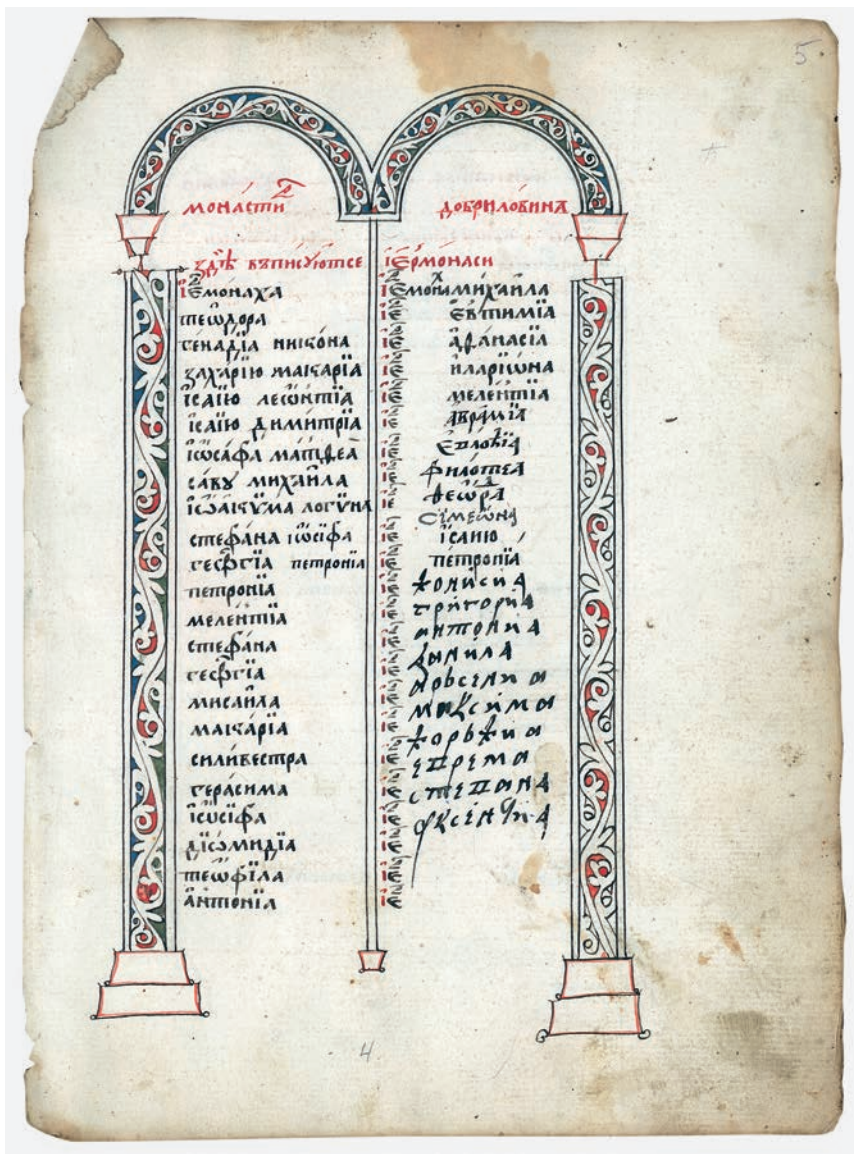 5
монасти҃р добриловина
здѣ въписуютсе
іермонаси
іемонаха
теѡдора
генадїа никона
захарїю макарїа
ісаїю леѡнтїа
ісаїю димитрїа
іѡсафа матѳеа
саву михаила
іѡакума логѵна
стефана іѡсифа
геѡргїа петронїа
петронїа
мелентїа
стефана
геѡргїа
мисаила
макарїа
силивестра
герасима
іѡсифа
дїѡмидїа
теѡфила
антонїа
іемонах михаила
іе евтимїа
іе аѳанасїа
іе иларїѡна
іе мелентїа
іе аврамїа
іе
іе филотеа
іе ѳеѡдра
іе сімеѡна
іе ісаию
іе петронїа
іе
іе григориа
іе антониа
іе данила
іе арьсениа
іе максима
іе
іе
іе степана
іе
іе
іе
іе
4